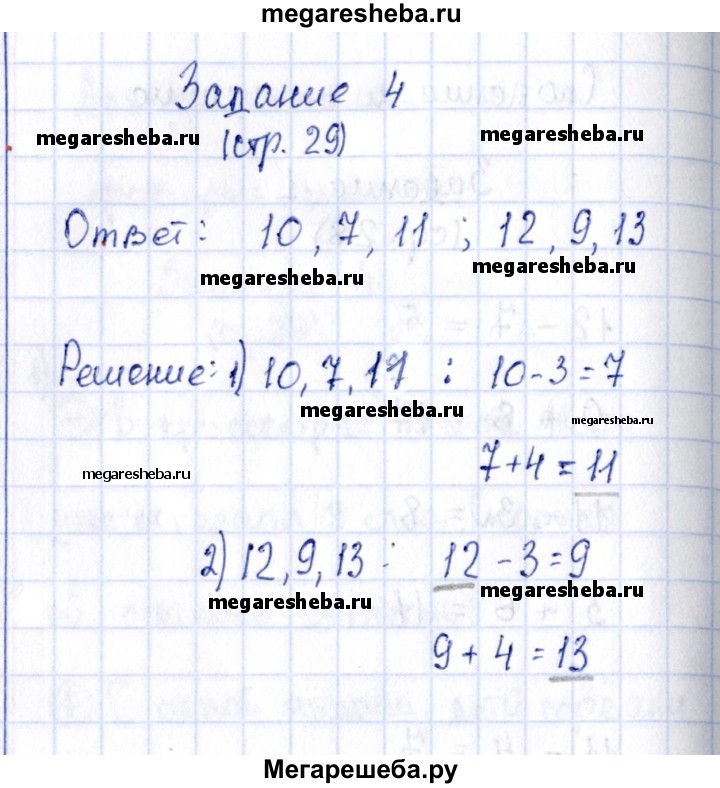 megaresheba.ru
Задание 4
megaresheba.ru
(стр. 29)
megaresheba.ru
Ответ: 10, 7, 11 ; 12, 9, 13
megaresheba.ru
megaresheba.ru
Решение: 1) 10, 7, 11 : 10-3=7
megaresheba.ru
megaresheba.ru
7+4=11
megaresheba.ru
2) 12, 9, 13 : 12-3=9
megaresheba.ru
megaresheba.ru
9+4=13
Мегарешеба.ру